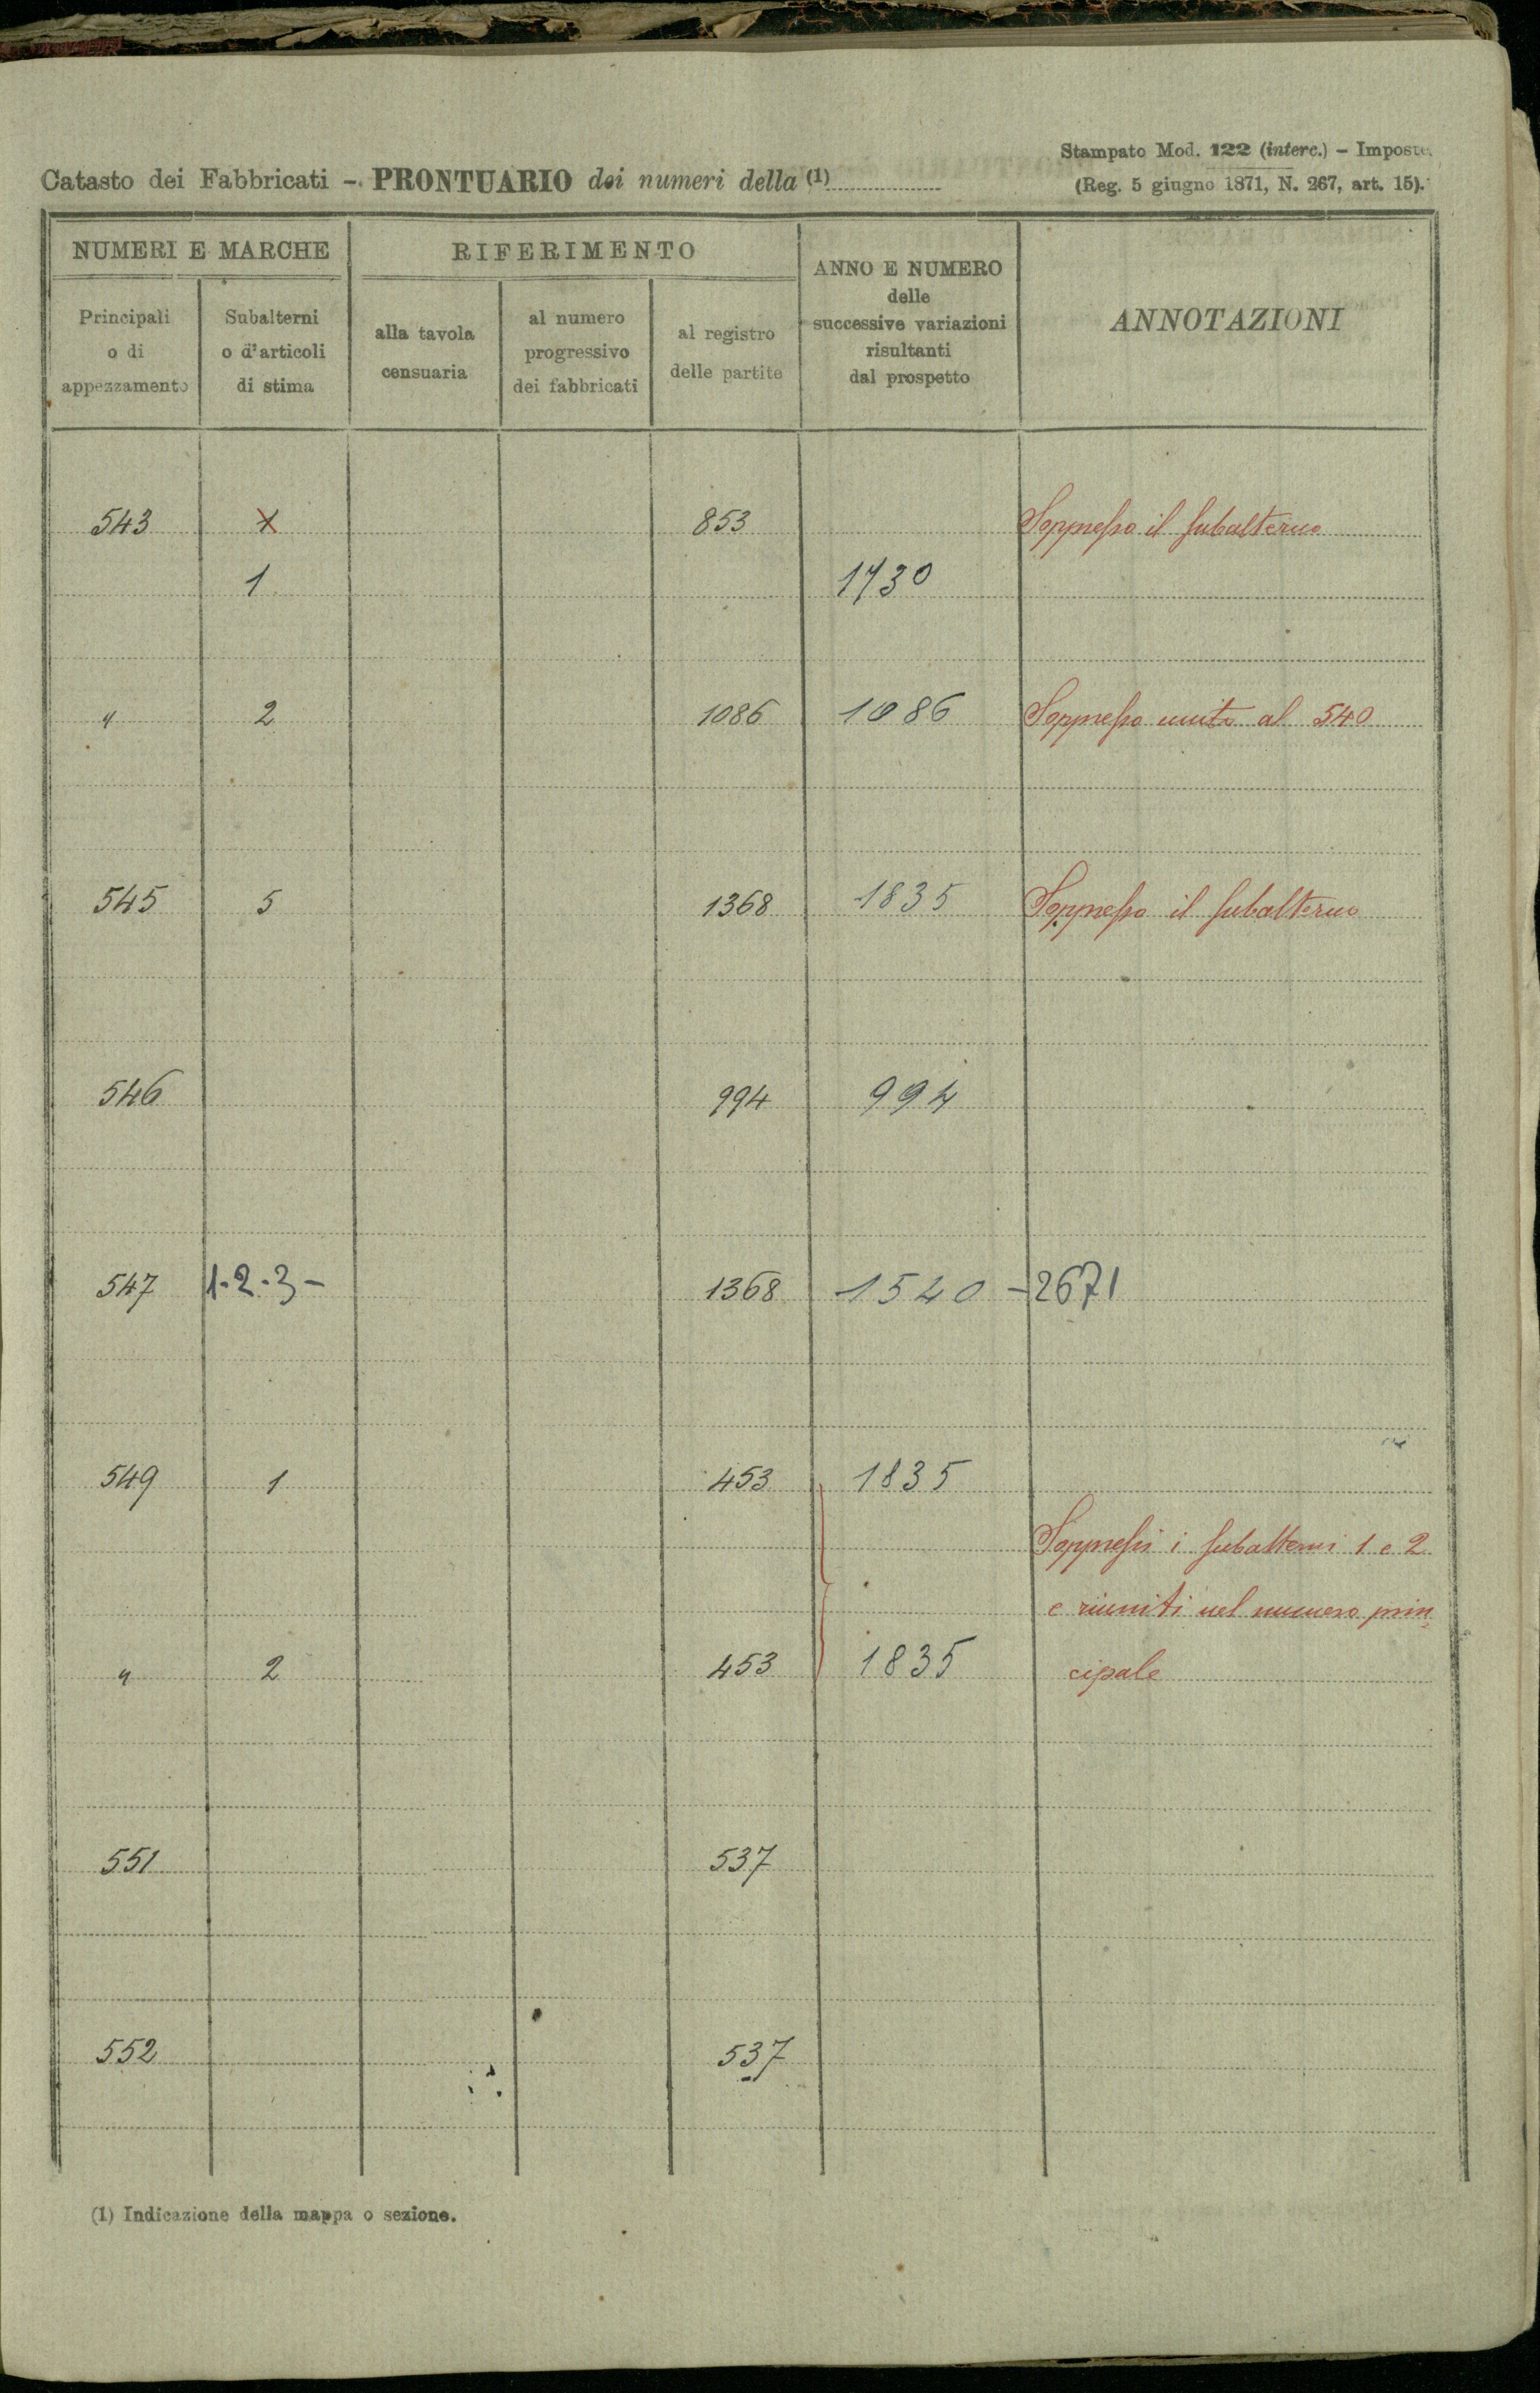 Stampato Mod. 122 (interc.) – Imposte.
Catasto dei Fabbricati – PRONTUARIO dei numeri della (1)
(Reg. 5 giugno 1871, N. 267, art. 15).
NUMERI E MARCHE
RIFERIMENTO
ANNO E NUMERO
delle
successive variazioni
risultanti
dal prospetto
ANNOTAZIONI
Principali
o di
appezzamento
Subalterni
o d'articoli
di stima
alla tavola
censuaria
al numero
progressivo
dei fabbricati
al registro
delle partite
543 853 Soppresso il subalterno
1 1730
" 2 1086 1086 Soppresso unito al 540
545 5 1368 1835 Soppresso il subalterno
546 994 994
547 1-2-3- 1368 1540 - 2671
549 1 453 1835
Soppressi i subalterni 1 e 2
e riuniti nel numero prin
" 2 453 1835 cipale
551 537
552 537
(1) Indicazione della mappa o sezione.